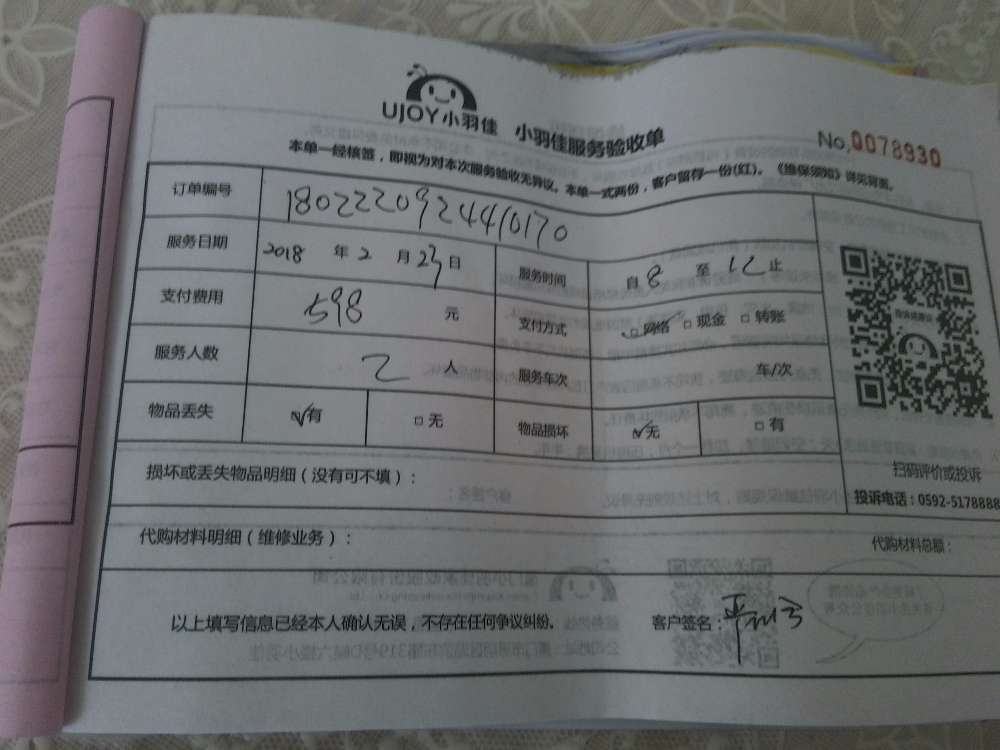 UJOY小羽佳 小羽佳服务验收单
No.0078930
本单一经核签，即视为对本次服务验收无异议。本单一式两份，客户留存一份(红)。《维保须知》详见背面。
订单编号 1802220924410170
服务日期 2018 年 2 月 23 日 服务时间 自 8 至 12 止
支付费用 598 元 支付方式 网络 现金 转账
服务人数 2 人 服务车次 车/次
物品丢失 有 无 物品损坏 无 有
扫码评价或投诉
投诉电话：0592-5178888
损坏或丢失物品明细（没有可不填）：
代购材料明细（维修业务）： 代购材料总额：
以上填写信息已经本人确认无误，不存在任何争议纠纷。 客户签名：